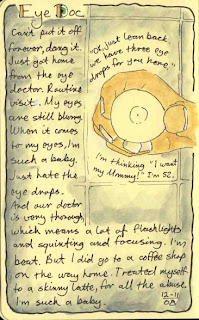 Eye Doc
Can't put it off
forever, dang it.
Just got home
from the eye
doctor. Routine
visit. My eyes
are still blurry.
When it comes
to my eyes, I'm
such a baby.
Just hate the
eye drops.
And our doctor
is very thorough,
which means a lot of flashlights
and squinting and focusing. I'm
beat. But I did go to a coffee shop
on the way home. Treated myself
to a skinny latte, for all the abuse.
I'm such a baby.
"Oh, just lean back,
we have three eye
drops for you here."
I'm thinking "I want
my Mommy!" I'm 52.
12-11
08